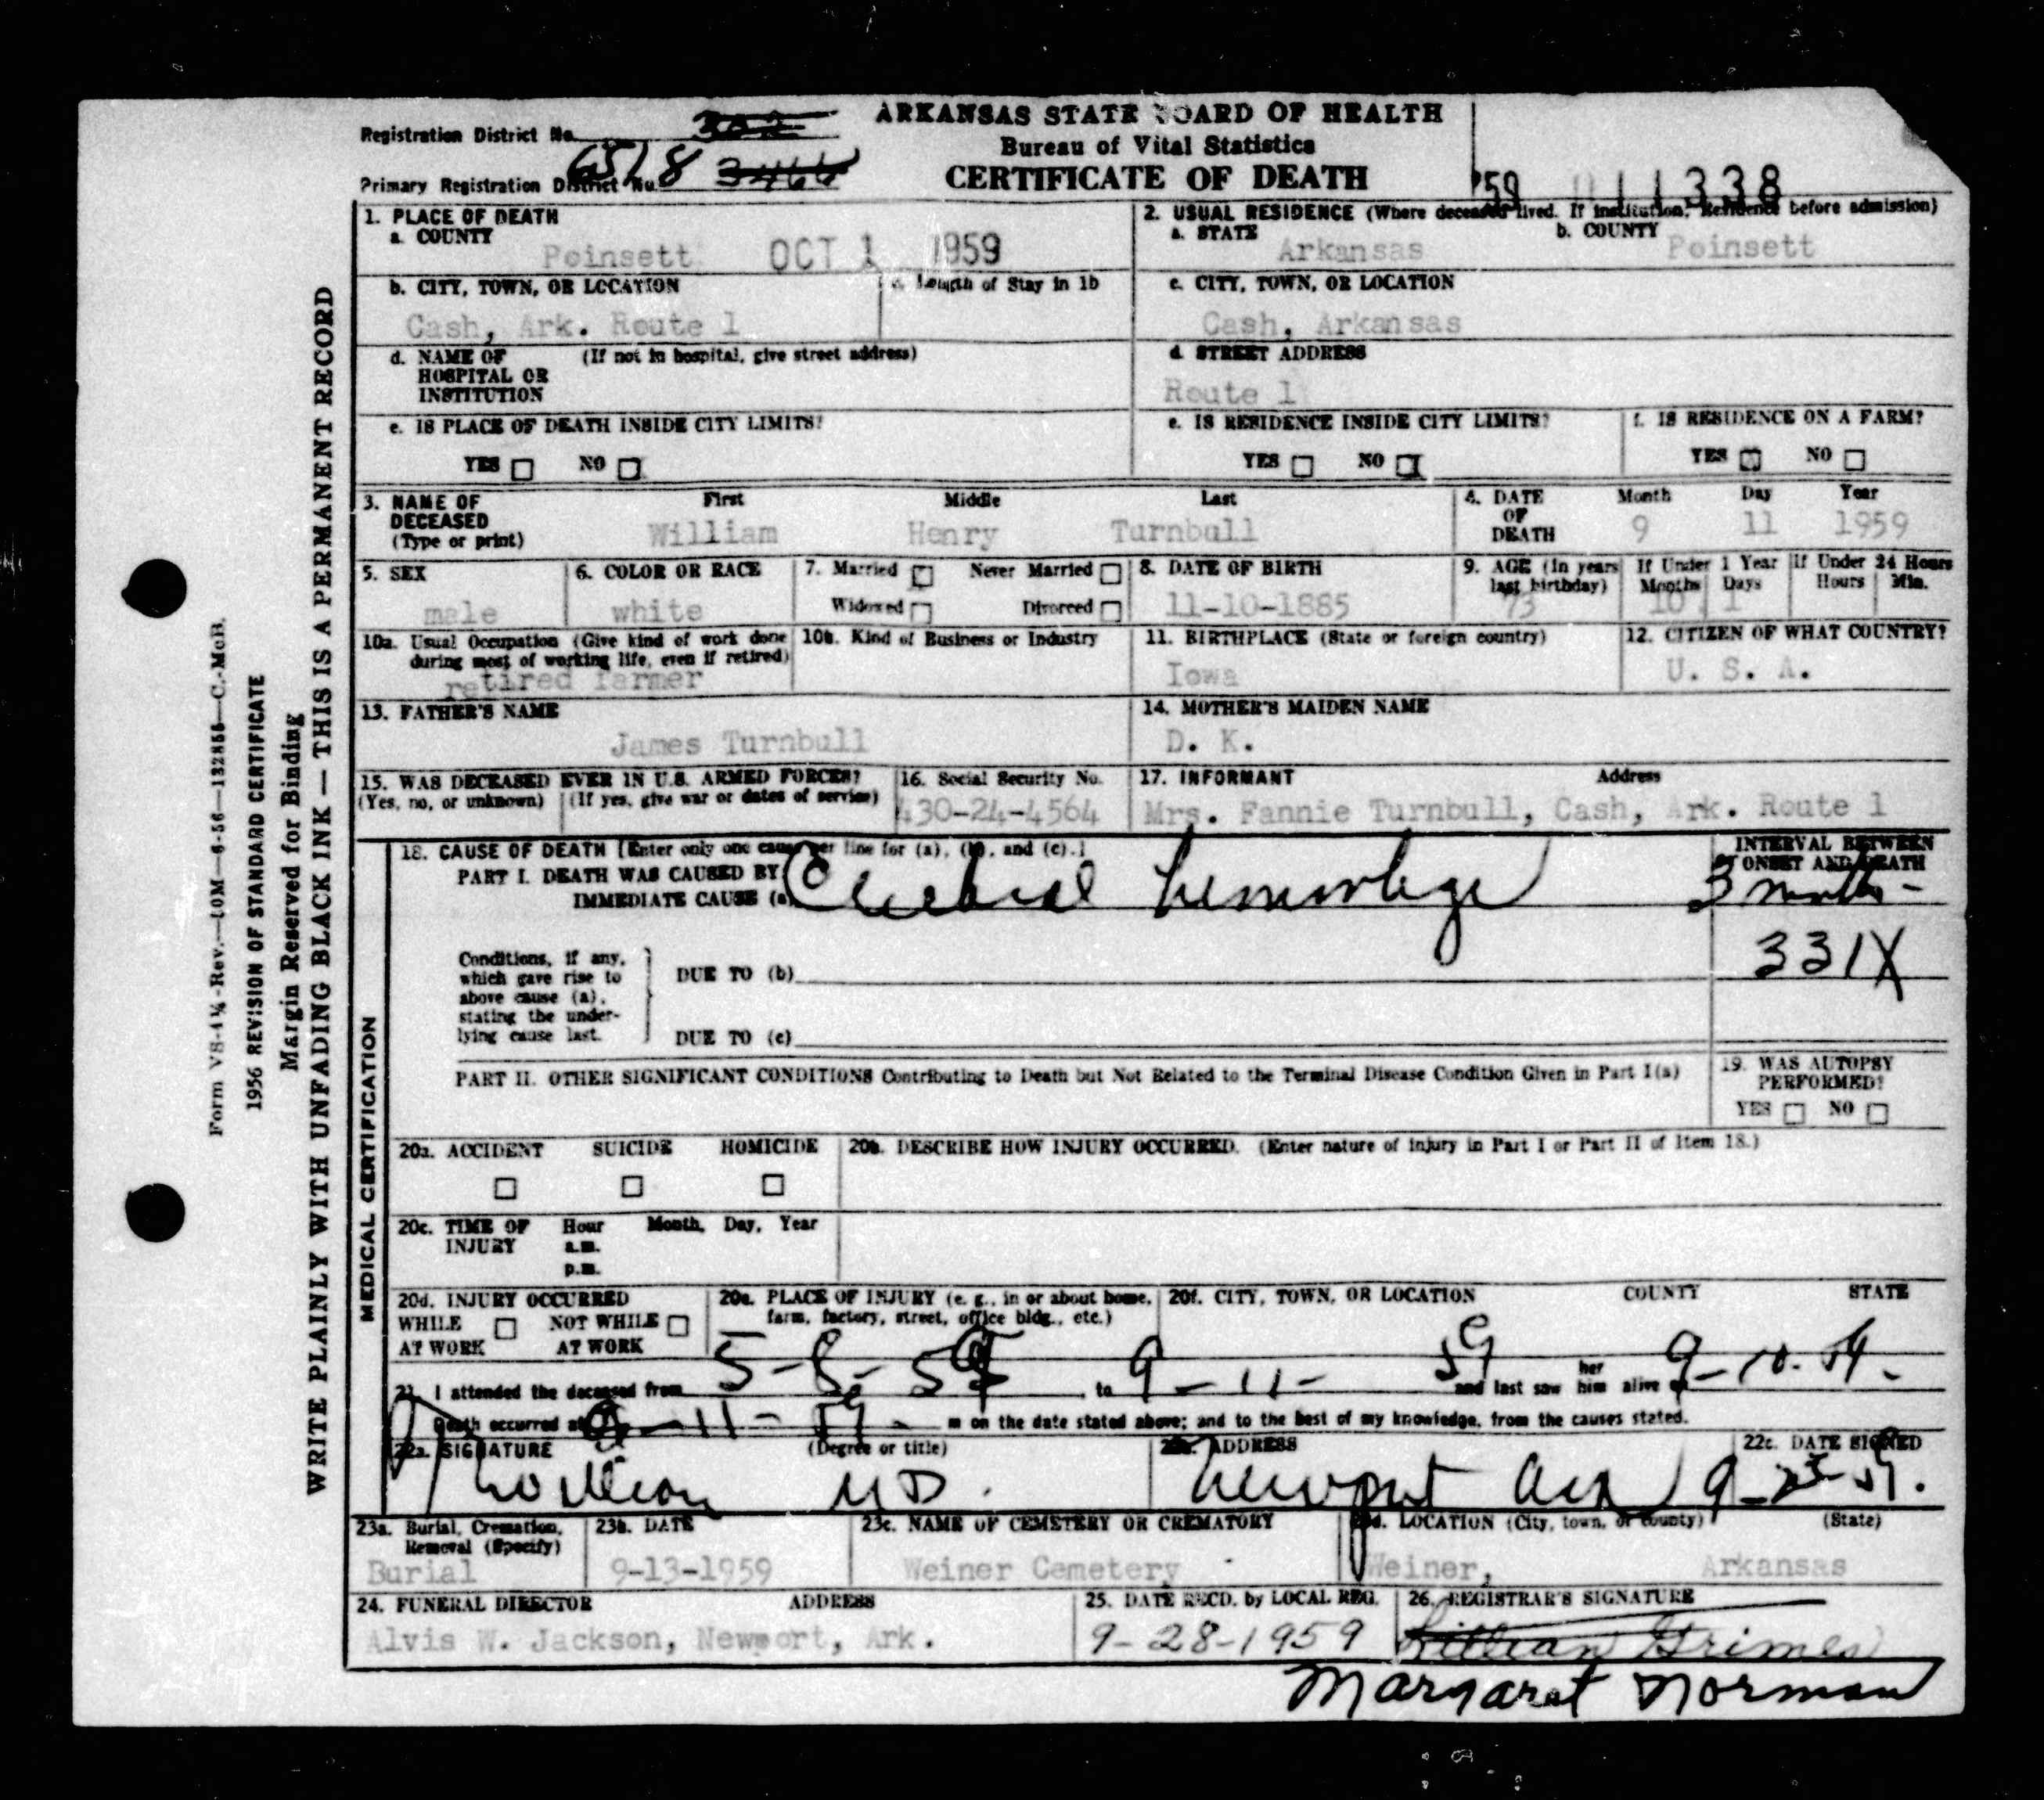 ARKANSAS STATE BOARD OF HEALTH
Bureau of Vital Statistics
CERTIFICATE OF DEATH
Registration District No. 302
Primary Registration District No. 6518 3466
'59 011338
1. PLACE OF DEATH
a. COUNTY
Poinsett OCT 1 1959
2. USUAL RESIDENCE (Where deceased lived. If institution: Residence before admission)
a. STATE b. COUNTY
Arkansas Poinsett
b. CITY, TOWN, OR LOCATION c. Length of Stay in 1b
Cash, Ark. Route 1
c. CITY, TOWN, OR LOCATION
Cash, Arkansas
d. NAME OF (If not in hospital, give street address)
HOSPITAL OR
INSTITUTION
d. STREET ADDRESS
Route 1
e. IS PLACE OF DEATH INSIDE CITY LIMITS?
YES NO
e. IS RESIDENCE INSIDE CITY LIMITS?
YES NO
f. IS RESIDENCE ON A FARM?
YES NO
3. NAME OF First Middle Last
DECEASED
(Type or print) William Henry Turnbull
4. DATE Month Day Year
OF
DEATH 9 11 1959
5. SEX
male
6. COLOR OR RACE
white
7. Married Never Married
Widowed Divorced
8. DATE OF BIRTH
11-10-1885
9. AGE (In years If Under 1 Year If Under 24 Hours
last birthday) Months Days Hours Min.
73 10 1
10a. Usual Occupation (Give kind of work done
during most of working life, even if retired)
retired farmer
10b. Kind of Business or Industry
11. BIRTHPLACE (State or foreign country)
Iowa
12. CITIZEN OF WHAT COUNTRY?
U. S. A.
13. FATHER'S NAME
James Turnbull
14. MOTHER'S MAIDEN NAME
D. K.
15. WAS DECEASED EVER IN U.S. ARMED FORCES?
(Yes, no, or unknown) (If yes, give war or dates of service)
16. Social Security No.
430-24-4564
17. INFORMANT Address
Mrs. Fannie Turnbull, Cash, Ark. Route 1
18. CAUSE OF DEATH [Enter only one cause per line for (a), (b), and (c).]
PART I. DEATH WAS CAUSED BY:
IMMEDIATE CAUSE (a) Cerebral hemorhage
INTERVAL BETWEEN
ONSET AND DEATH
3 months -
331X
Conditions, if any,
which gave rise to
above cause (a),
stating the under-
lying cause last.
DUE TO (b)
DUE TO (c)
PART II. OTHER SIGNIFICANT CONDITIONS Contributing to Death but Not Related to the Terminal Disease Condition Given in Part I(a)
19. WAS AUTOPSY
PERFORMED?
YES NO
20a. ACCIDENT SUICIDE HOMICIDE
20b. DESCRIBE HOW INJURY OCCURRED. (Enter nature of injury in Part I or Part II of Item 18.)
20c. TIME OF Hour Month, Day, Year
INJURY a.m.
p.m.
20d. INJURY OCCURRED
WHILE NOT WHILE
AT WORK AT WORK
20e. PLACE OF INJURY (e. g., in or about home,
farm, factory, street, office bldg., etc.)
20f. CITY, TOWN, OR LOCATION COUNTY STATE
21. I attended the deceased from 5-8-59 to 9-11-59 and last saw her him alive on 9-10-59.
Death occurred at 9-11-59- m on the date stated above; and to the best of my knowledge, from the causes stated.
22a. SIGNATURE (Degree or title)
MD.
22b. ADDRESS
Newport Ark
22c. DATE SIGNED
23a. Burial, Cremation,
Removal (Specify)
Burial
23b. DATE
9-13-1959
23c. NAME OF CEMETERY OR CREMATORY
Weiner Cemetery
23d. LOCATION (City, town, or county) (State)
Weiner, Arkansas
24. FUNERAL DIRECTOR ADDRESS
Alvis W. Jackson, Newport, Ark.
25. DATE RECD. by LOCAL REG.
9-28-1959
26. REGISTRAR'S SIGNATURE
Lillian Grimes
Margaret Norman
MEDICAL CERTIFICATION
WRITE PLAINLY WITH UNFADING BLACK INK — THIS IS A PERMANENT RECORD
Margin Reserved for Binding
1956 REVISION OF STANDARD CERTIFICATE